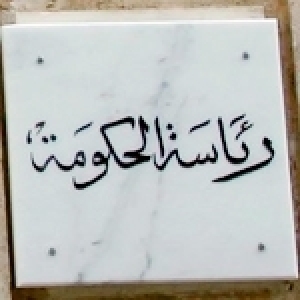 رئاسة الحكومة